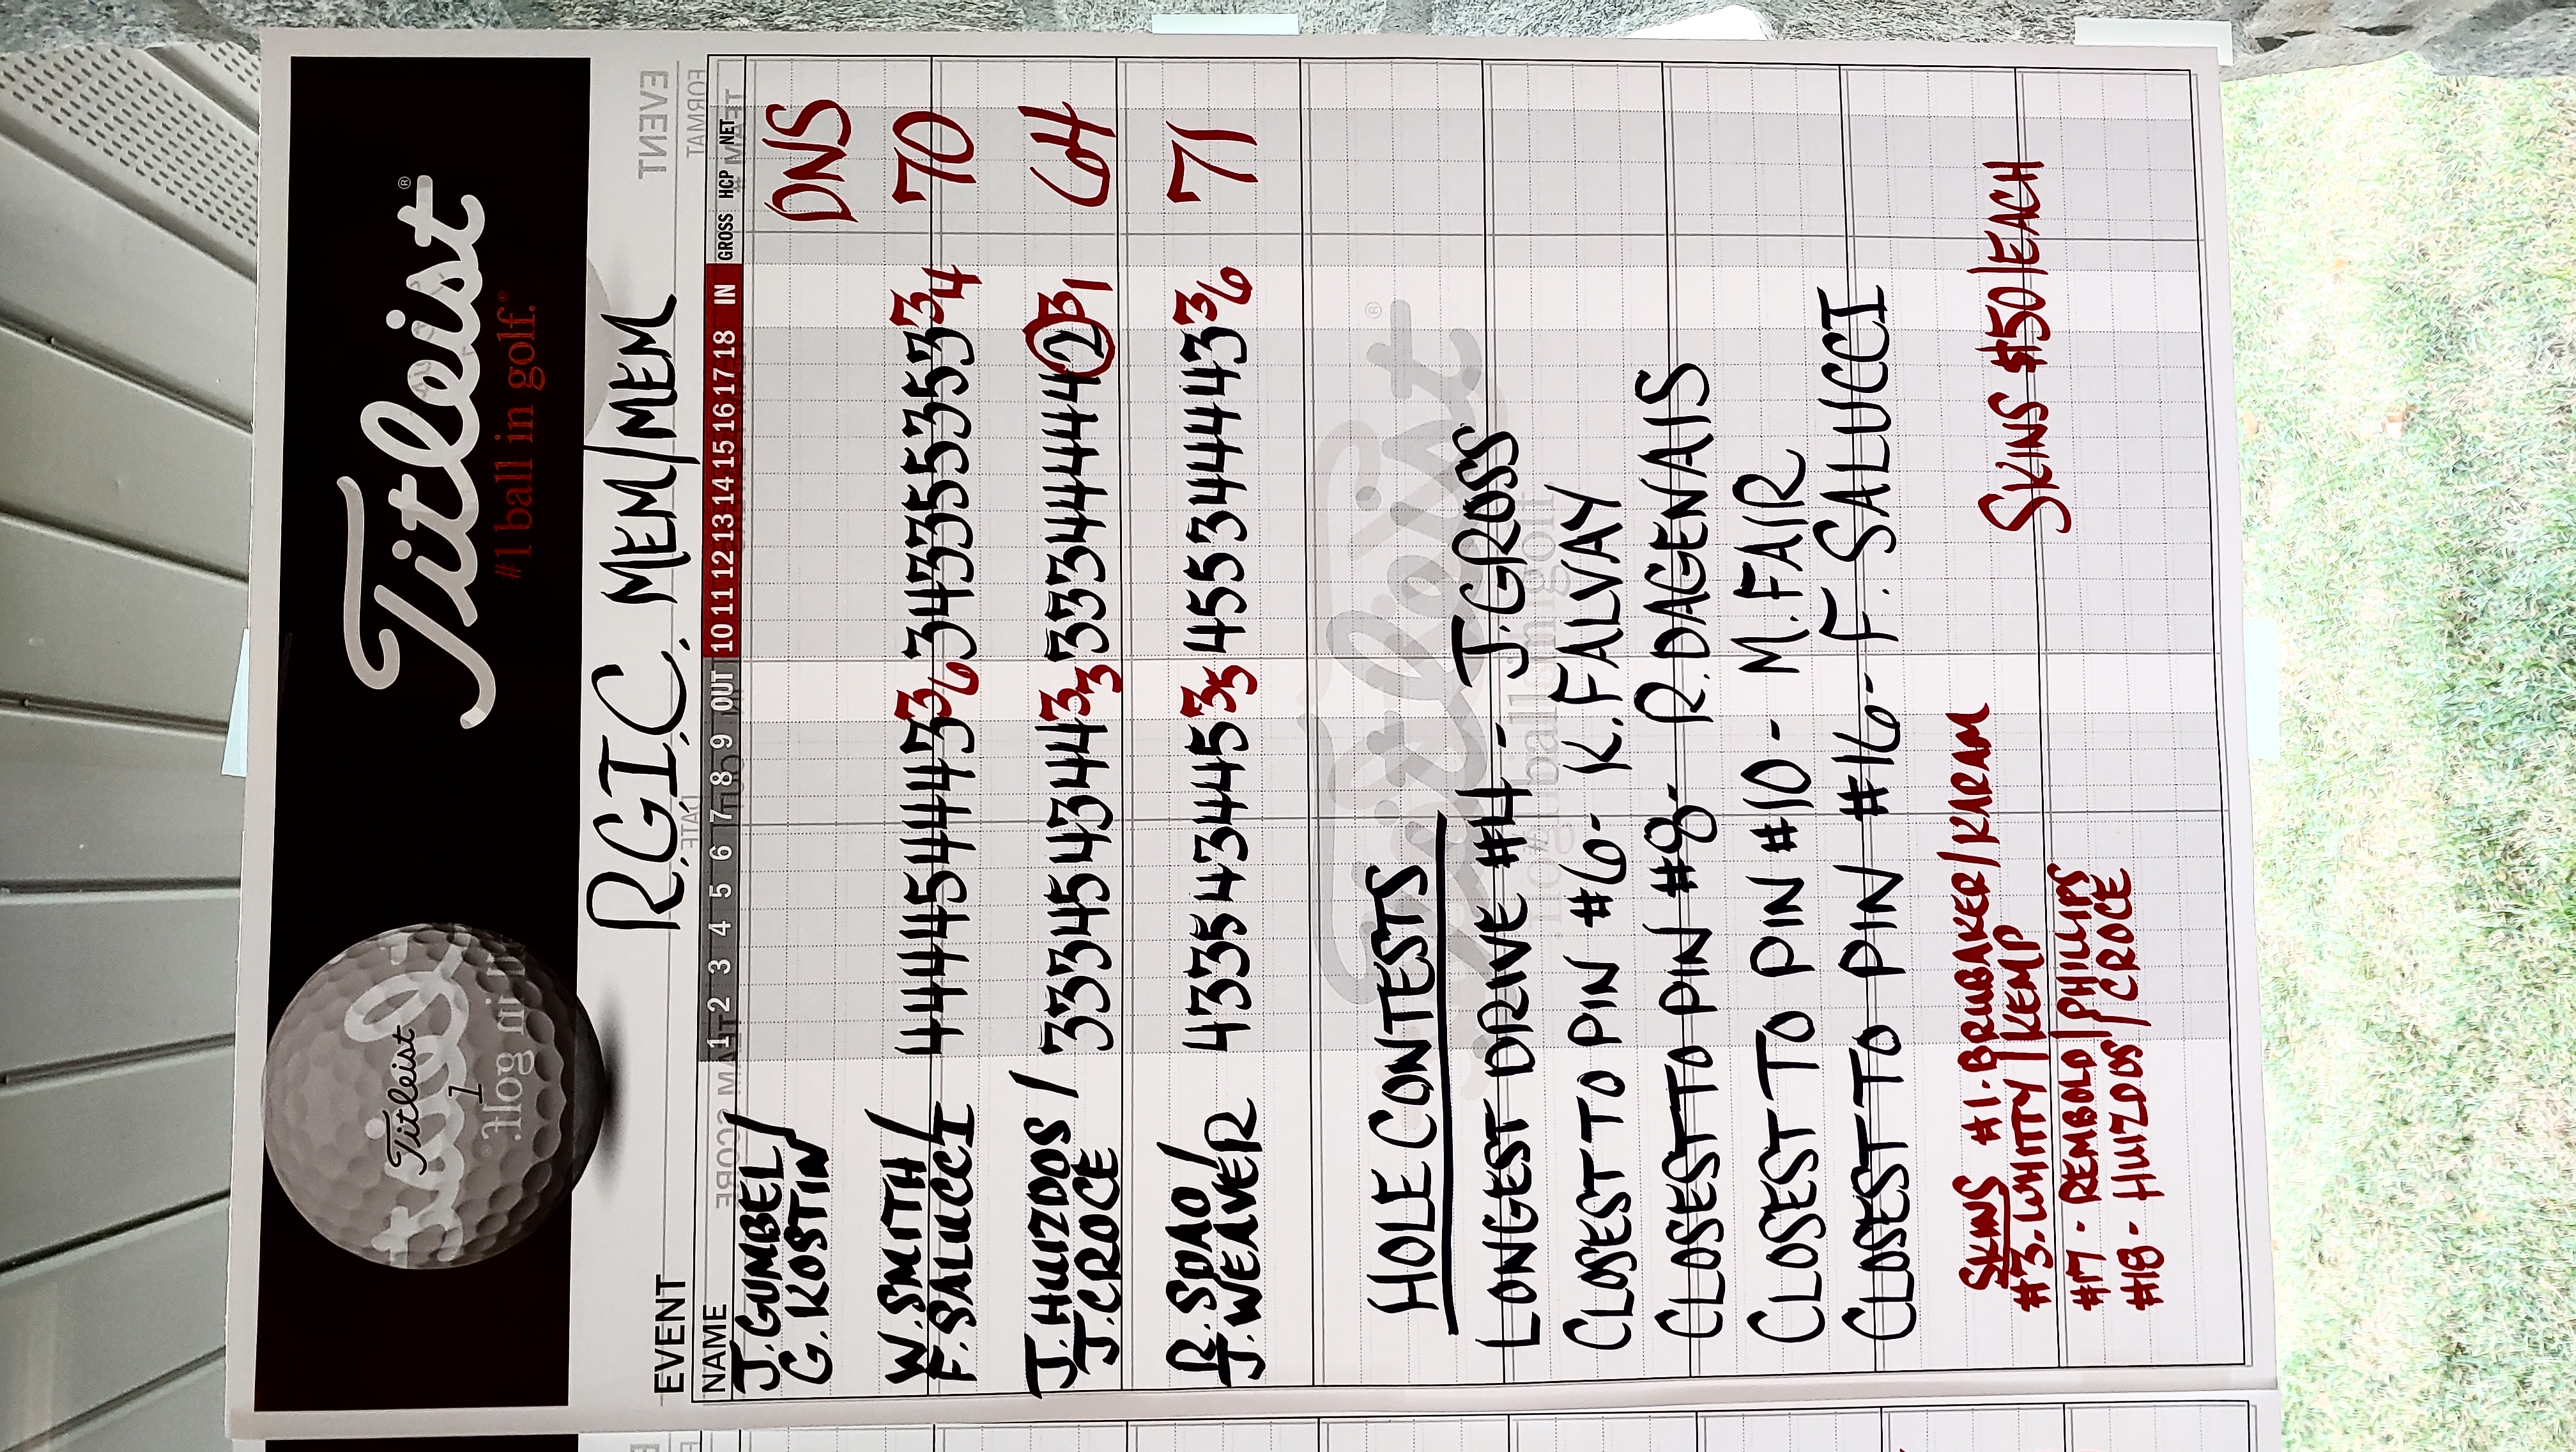 Titleist®
#1 ball in golf.®
Titleist
1
EVENT R.G.I.C. MEM/MEM
NAME 1 2 3 4 5 6 7 8 9 OUT 10 11 12 13 14 15 16 17 18 IN GROSS HCP NET
J. GUMBEL/
G. KOSTIN DNS
W. SMITH/
F. SALUCCI 4 4 4 4 5 4 4 4 3 36 3 4 3 3 5 5 3 5 3 34 70
J. HUIZDOS/
J. CROCE 3 3 3 4 5 4 3 4 4 33 3 3 3 4 4 4 4 4 2 31 64
R. SPAO/
J. WEAVER 4 3 3 5 4 3 4 4 5 35 4 5 5 3 4 4 4 4 3 36 71
HOLE CONTESTS
LONGEST DRIVE #4 - J. GROSS
CLOSEST TO PIN #6 - K. FALVAY
CLOSEST TO PIN #8 - R. DAGENAIS
CLOSEST TO PIN #10 - M. FAIR
CLOSEST TO PIN #16 - F. SALUCCI
SKINS #1. BRUBAKER/KARAM
#3. WHITTY/KEMP
#17 - REMBOLD/PHILLIPS
#18 - HUIZDOS/CROCE
SKINS $150/EACH